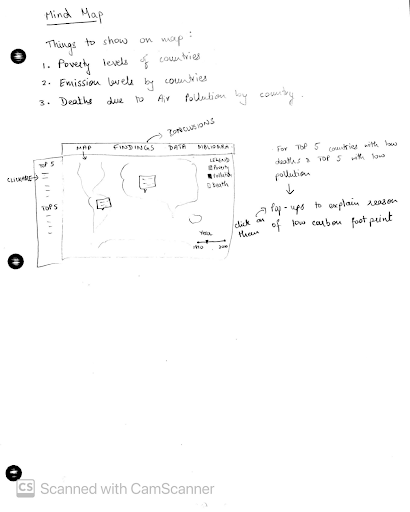 Mind Map
Things to show on map :
1. Poverty levels of countries
2. Emission levels by countries
3. Deaths due to Air Pollution by country.
CONCLUSIONS
MAP FINDINGS DATA
TOP 5
CLICKABLE
TOP 5
LEGEND
Poverty
Death
Year
1990
For TOP 5 countries with low
deaths & TOP 5 with low
pollution
Pop-ups to explain reason
of low carbon foot print
click on
them
CS Scanned with CamScanner